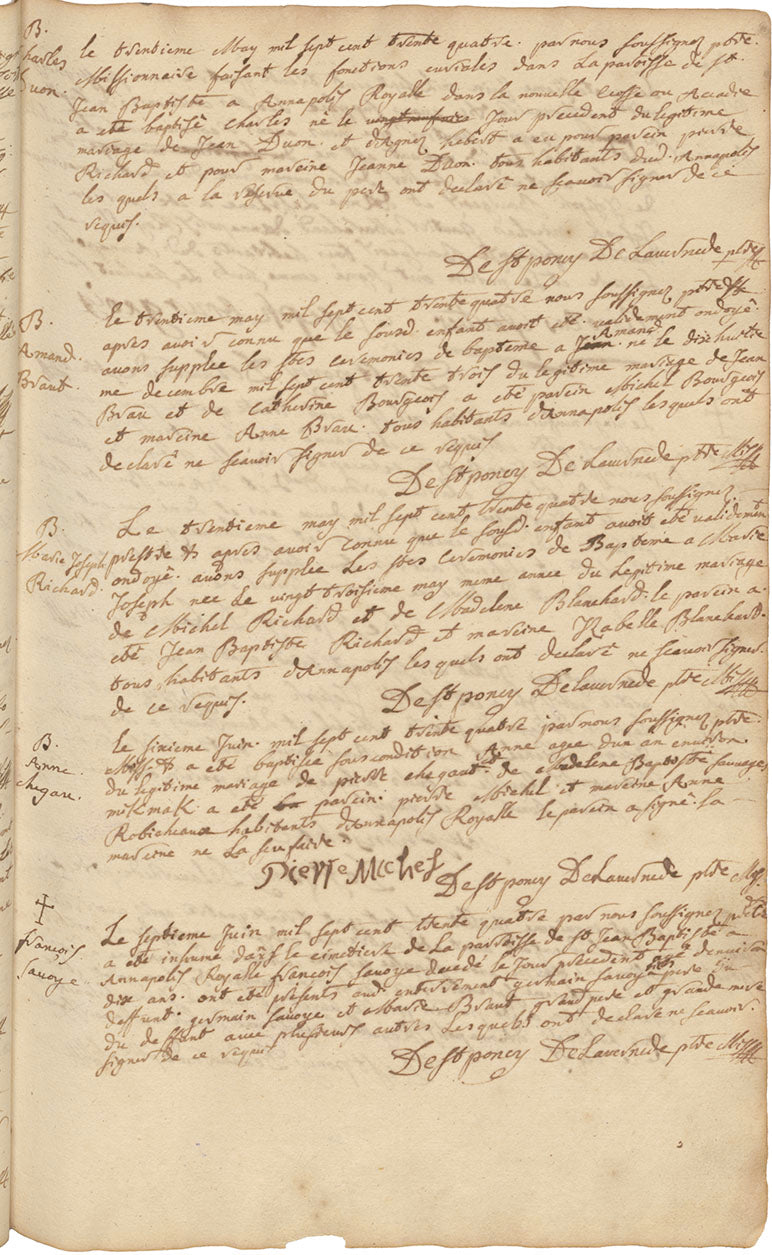 B.
Charles
Duon.
le trentieme May mil sept cent trente quatre. par nous soussignez ptre.
Missionnaire faisant les fonctions curiales dans la paroisse de st.
Jean Baptiste a Annapolis Royalle dans la nouvelle Ecosse ou Accadie
a eté baptisé Charles né le jour precedent du legitime
mariage de Jean Duon. et d'Agnez hebert a eu pour parein pierre
Richard et pour mareine Jeanne Duon. tous habitants dud. Annapolis
les quels a la reserve du pere ont declaré ne scavoir signer de ce
requis.
De St poncy De Lavernede ptre
B.
Amand.
Braut.
le trentieme may mil sept cent trente quatre nous soussignez ptre
apres avoir connu que le sousd. enfant avoit eté validement ondoyé
avons supplee les stes ceremonies de bapteme a Amand né le dischuitie
me decembre mil sept cent trente trois du legitime mariage de Jean
Brau et de Catherine Bourgeois a eté parein Michel Bourgeois
et mareine Anne Brau. tous habitants d'Annapolis lesquels ont
declaré ne scavoir signer de ce requis
De St poncy De Lavernede ptre Miss
B.
Marie Joseph
Richard.
Le trentieme may mil sept cent trente quatre nous soussignez.
prestre & apres avoir connu que le sousd. enfant avoit eté validement
ondoyé. avons supplee Les stes ceremonies de Bapteme a Marie
Joseph nee Le vingt troisieme may meme année du Legitime mariage
de Michel Richard et de Madelene Blanchard. le parein a
eté Jean Baptiste Richard et mareine Izabelle Blanchard.
tous habitants d'Annapolis les quels ont declaré ne scavoir signer.
de ce requis.
De St poncy De Lavernede ptre Miss
B.
Anne.
chegau.
le sixieme Juin. mil sept cent trente quatre par nous soussignez ptre.
Miss & a eté baptisée sous condition Anne agee d'un an environ.
du legitime mariage de pierre chegaut. et de Madelene Baptiste sauvages
mikmak a eté parein. pierre Michel et mareine Anne
Robicheaux habitants d'Annapolis Royalle le parein a signé. la
mareine ne La sceu faire.
pierre Michel
De St poncy De Lavernede ptre Miss
francois
savoye.
Le septieme Juin mil sept cent trente quatre par nous soussignez ptre
a eté inhumé dans le cimetiere de la paroisse de St Jean Baptiste a
Annapolis Royalle francois savoye decedé le jour precedent agé d'environ
dix ans. ont eté presents aud. enterrement germain savoye pere du
deffunt. germain savoye et Marie Braut grand pere et grande mere
du deffunt avec plusieurs autres Lesquels ont declaré ne scavoir.
signer de ce requis
De St poncy De Lavernede ptre Miss